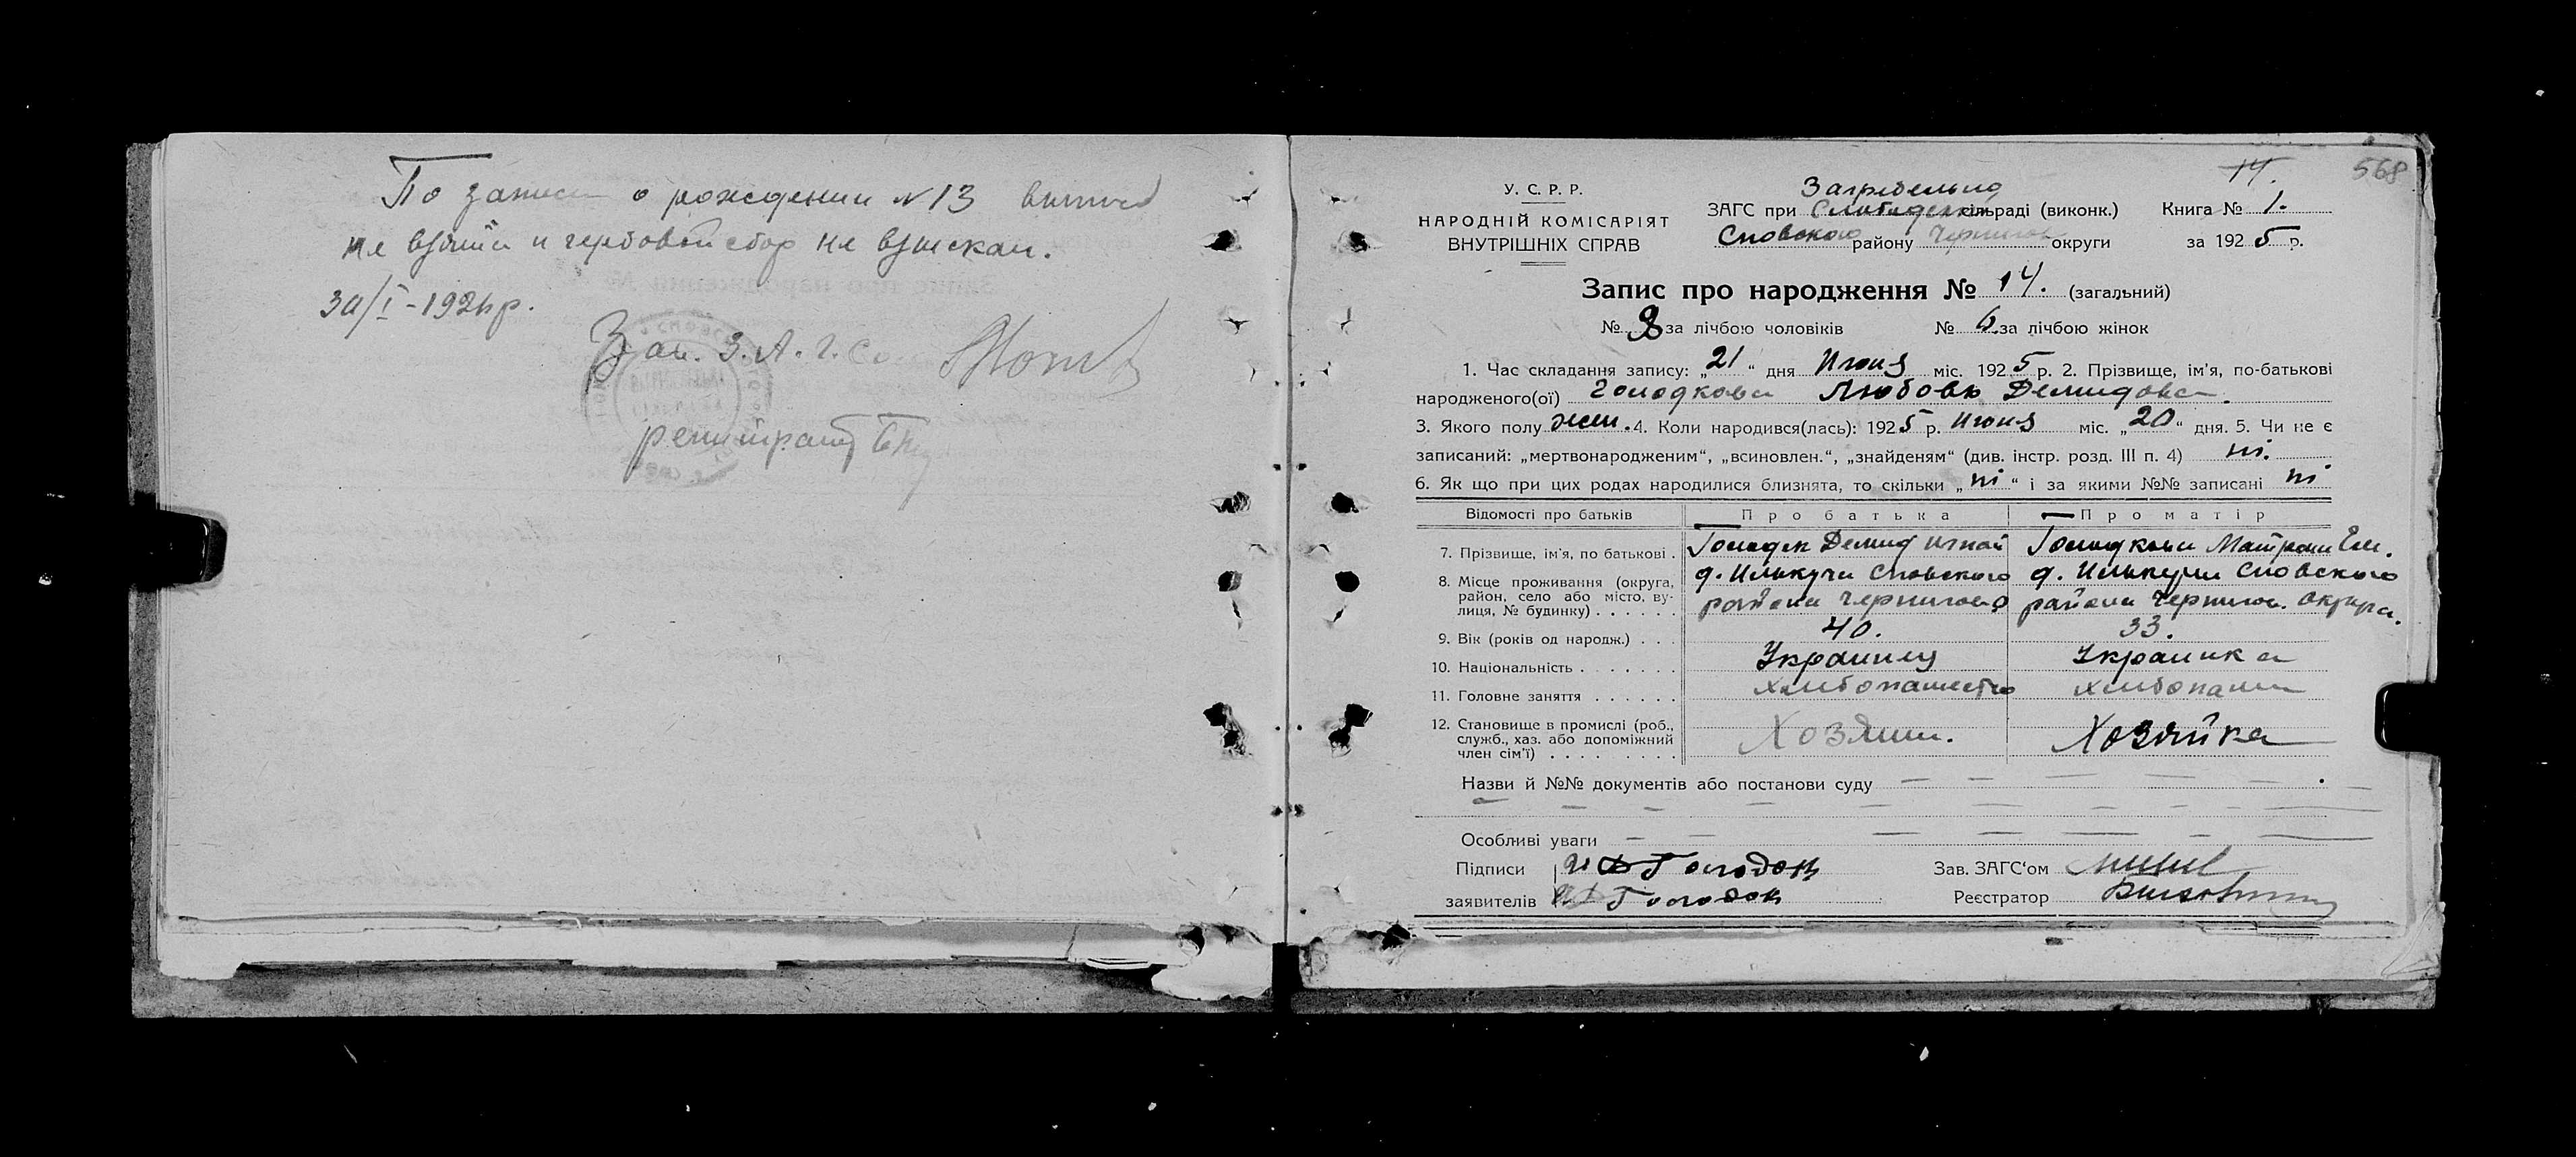 По записи о рождении №13 выписи
не взяти и гербовой сбор не взыскан.
30/I-1926р.
Зав. З.А.Г.С
регистратор
14.
568
У. С. Р. Р.
НАРОДНІЙ КОМІСАРІЯТ
ВНУТРІШНІХ СПРАВ
Загребельно
ЗАГС при Слободской сільраді (виконк.) Книга № 1.
Сновского району Чернигов округи за 1925 р.
Запис про народження № 14. (загальний)
№ 8 за лічбою чоловіків № 6 за лічбою жінок
1. Час складання запису: „21“ дня Июня міс. 1925 р. 2. Прізвище, ім'я, по-батькові
народженого(ої) Голодкова Любовь Демидова.
3. Якого полу жен. 4. Коли народився(лась): 1925 р. Июня міс. „20“ дня. 5. Чи не є
записаний: „мертвонародженим“, „всиновлен.“, „знайденям“ (див. інстр. розд. III п. 4) ні.
6. Як що при цих родах народилися близнята, то скільки „ні“ і за якими №№ записані ні
Відомості про батьків Про батька Про матір
7. Прізвище, ім'я, по батькові . Голодок Демид Игнат Голодкова Матрона Ем.
8. Місце проживання (округа, д. Илькуча Сновского д. Илькуча Сновского
район, село або місто, ву-
лиця, № будинку) . . . . . . района Чернигов о района Чернигов. округа.
9. Вік (років од народж.) . . . 40. 33.
10. Національність . . . . . . . Украинец Украинка
11. Головне заняття . . . . . . хлебопашество хлебопаш
12. Становище в промислі (роб.,
служб., хаз. або допоміжний Хозяин. Хозяйка
член сім'ї) . . . . . . . . .
Назви й №№ документів або постанови суду
Особливі уваги
Підписи И Д Голодок Зав. ЗАГС'ом
заявителів И Д Голодок Реєстратор